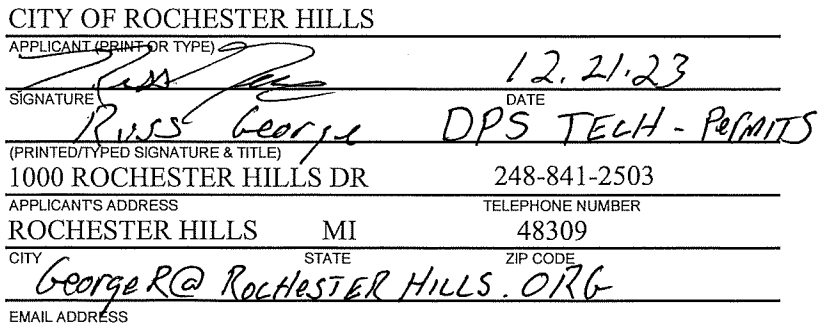 CITY OF ROCHESTER HILLS
APPLICANT (PRINT OR TYPE)
Russ 12.21.23
SIGNATURE DATE
Russ George DPS TECH - PERMITS
(PRINTED/TYPED SIGNATURE & TITLE)
1000 ROCHESTER HILLS DR 248-841-2503
APPLICANT'S ADDRESS TELEPHONE NUMBER
ROCHESTER HILLS MI 48309
CITY STATE ZIP CODE
GeorgeR@ROCHESTERHILLS.ORG
EMAIL ADDRESS